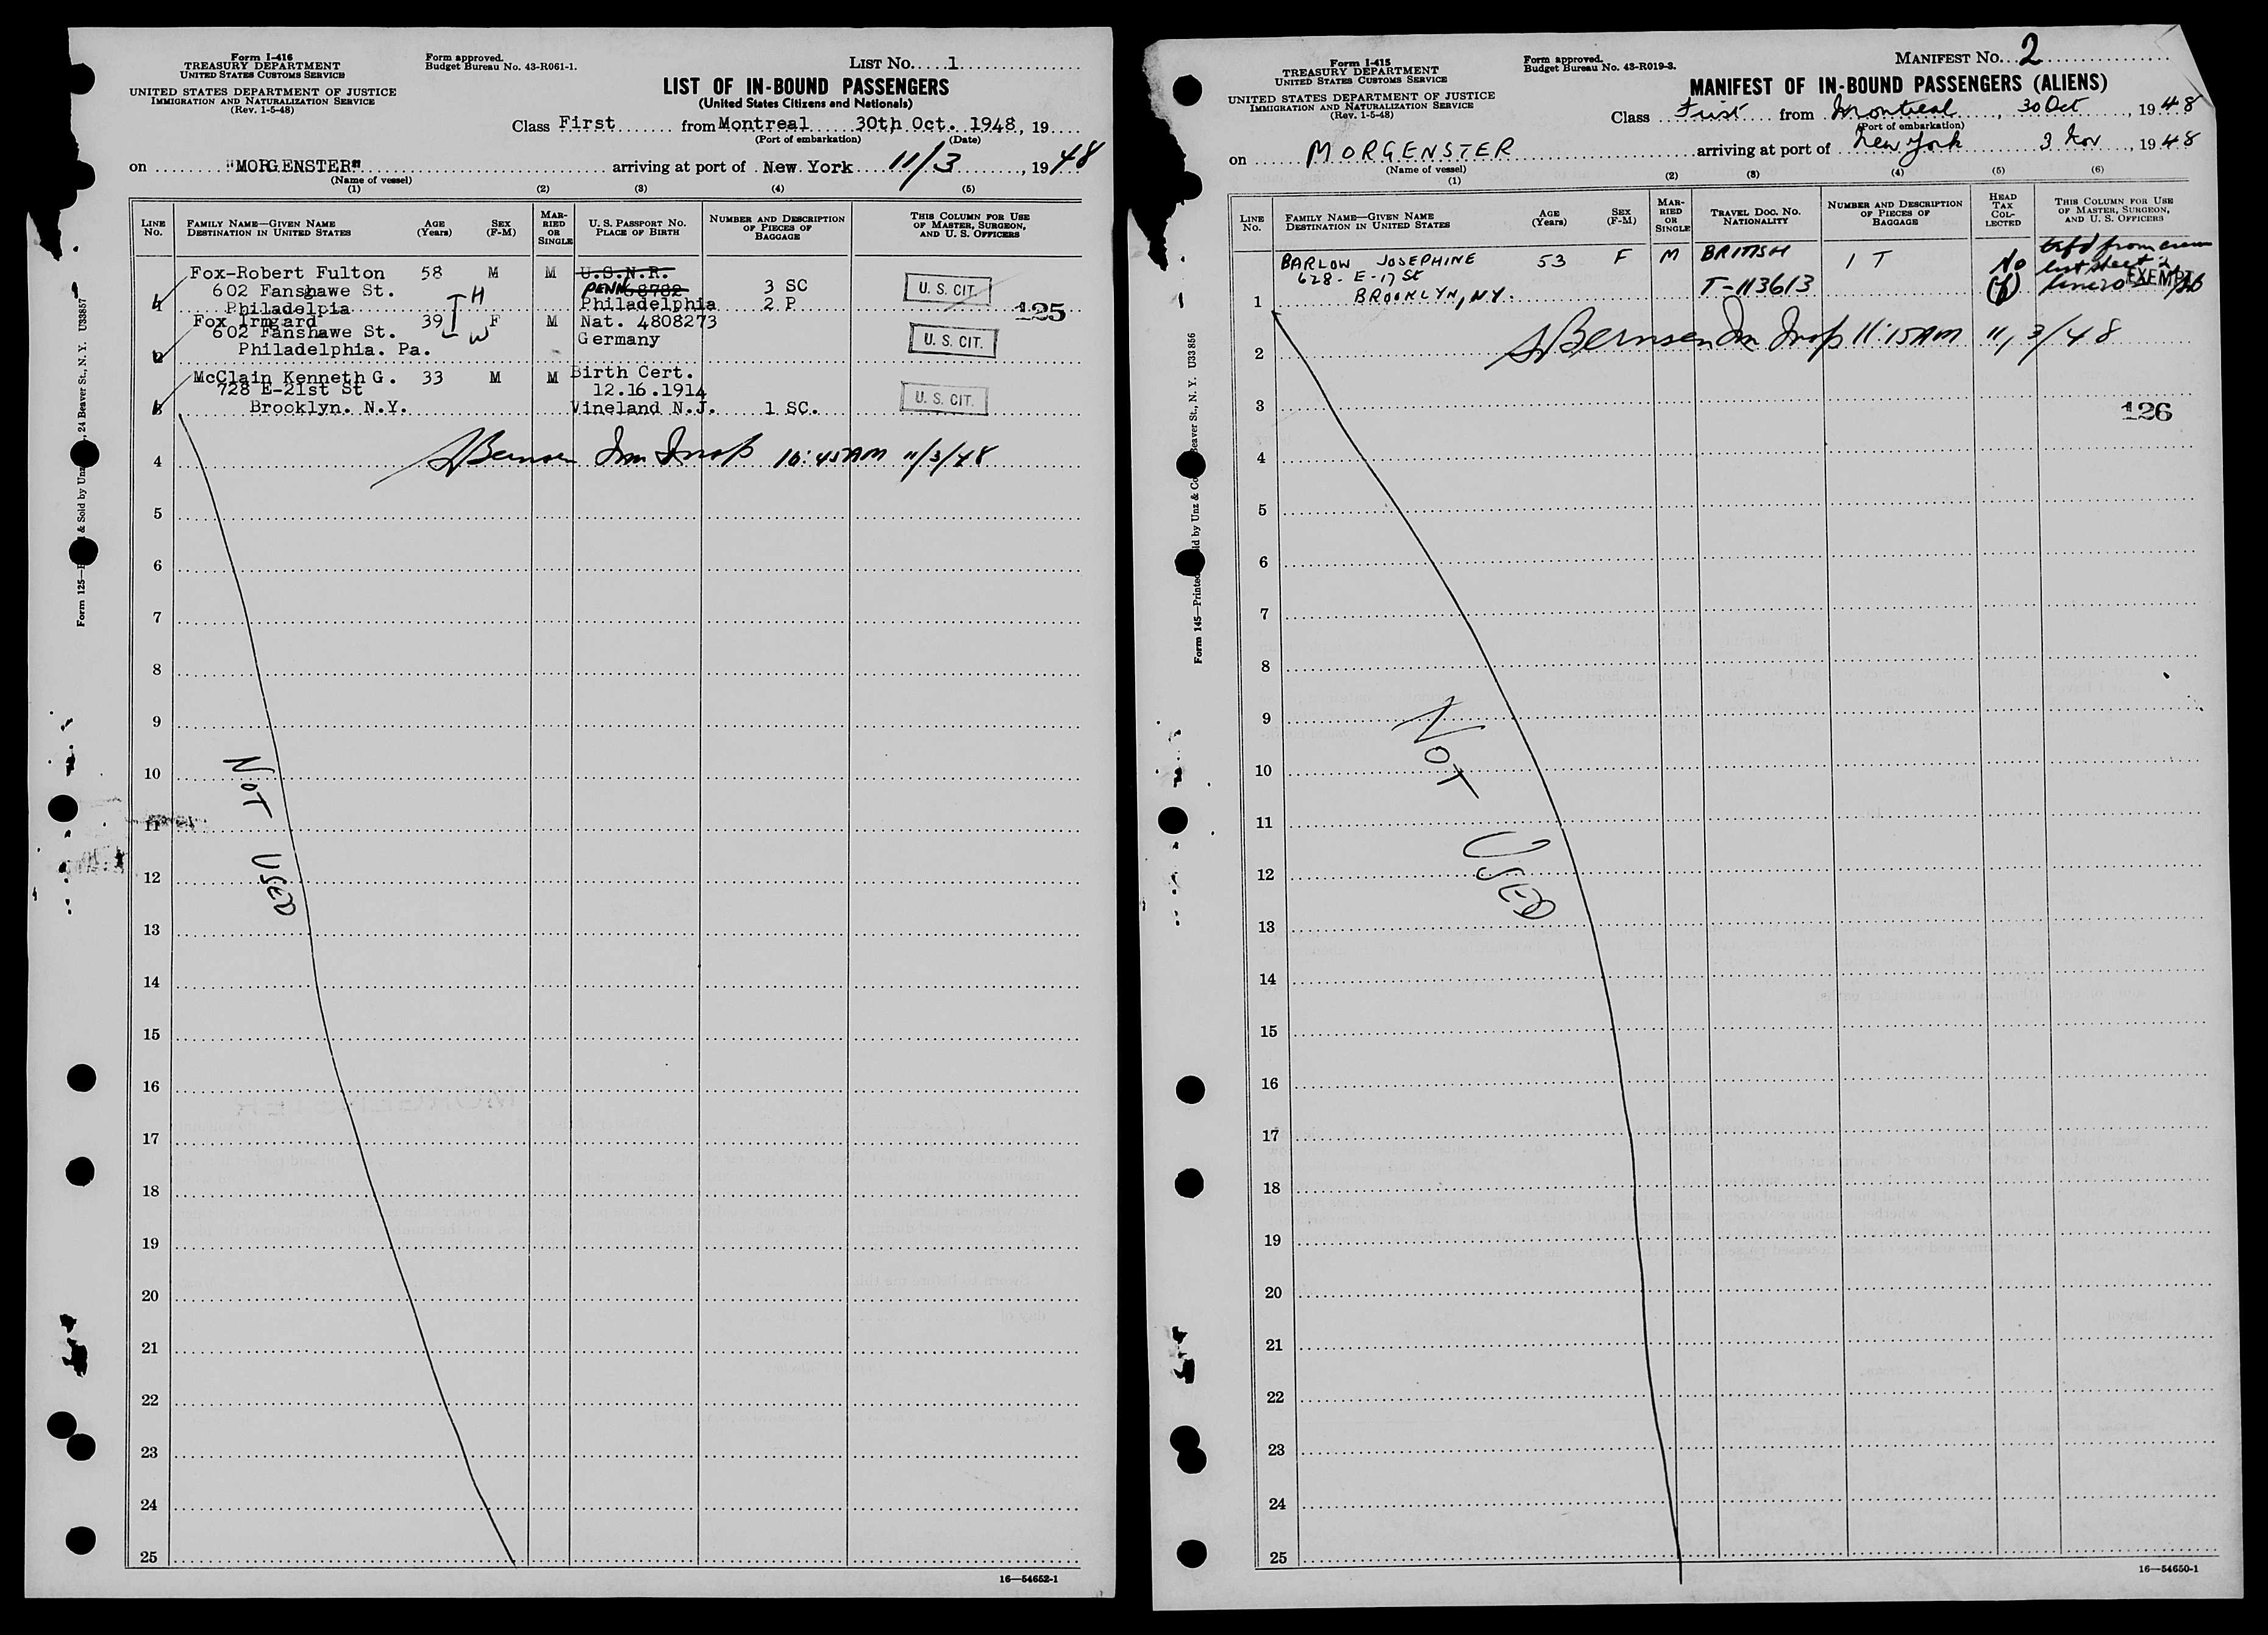 Form I-416
TREASURY DEPARTMENT
UNITED STATES CUSTOMS SERVICE
UNITED STATES DEPARTMENT OF JUSTICE
IMMIGRATION AND NATURALIZATION SERVICE
(Rev. 1-5-48)
Form approved.
Budget Bureau No. 43-R061-1.
LIST No. 1
LIST OF IN-BOUND PASSENGERS
(United States Citizens and Nationals)
Class First from Montreal 30th Oct. 1948, 19
(Port of embarkation) (Date)
on "MORGENSTER" arriving at port of New York 11/3, 1948
(Name of vessel)
(1) (2) (3) (4) (5)
LINE No. FAMILY NAME—GIVEN NAME DESTINATION IN UNITED STATES AGE (Years) SEX (F-M) MARRIED OR SINGLE U. S. PASSPORT NO. PLACE OF BIRTH NUMBER AND DESCRIPTION OF PIECES OF BAGGAGE THIS COLUMN FOR USE OF MASTER, SURGEON, AND U. S. OFFICERS
Fox-Robert Fulton 58 M M U.S.N.R.
602 Fanshawe St. PENN 3 SC U. S. CIT.
1 Philadelpia H Philadelphia 2 P 125
Fox Irmgard 39 F M Nat. 4808273
602 Fanshawe St. W Germany U. S. CIT.
2 Philadelphia. Pa.
McClain Kenneth G. 33 M M Birth Cert.
728 E-21st St 12.16.1914 U. S. CIT.
3 Brooklyn. N.Y. Vineland N.J. 1 SC.
4 Bernsen Imm Insp 10:45AM 11/3/48
5
6
7
8
9
10
11
12
13
14
15
16
17
18
19
20
21
22
23
24
25
NOT USED
16—54652-1
Form 125— & Sold by Unz , 24 Beaver St., N. Y. U33857
Form I-415
TREASURY DEPARTMENT
UNITED STATES CUSTOMS SERVICE
UNITED STATES DEPARTMENT OF JUSTICE
IMMIGRATION AND NATURALIZATION SERVICE
(Rev. 1-5-48)
Form approved.
Budget Bureau No. 43-R019-3.
MANIFEST No. 2
MANIFEST OF IN-BOUND PASSENGERS (ALIENS)
Class First from Montreal, 30 Oct, 1948
(Port of embarkation)
on MORGENSTER arriving at port of New York 3 Nov, 1948
(Name of vessel)
(1) (2) (3) (4) (5) (6)
LINE No. FAMILY NAME—GIVEN NAME DESTINATION IN UNITED STATES AGE (Years) SEX (F-M) MARRIED OR SINGLE TRAVEL DOC. NO. NATIONALITY NUMBER AND DESCRIPTION OF PIECES OF BAGGAGE HEAD TAX COLLECTED THIS COLUMN FOR USE OF MASTER, SURGEON, AND U. S. OFFICERS
BARLOW JOSEPHINE 53 F M BRITISH 1 T No trfd from crew
628- E-17 St list sheet 2
1 BROOKLYN, N.Y. T-113613 line 20 EXEMPT
2 Bernsen Imm Insp 11:15AM 11/3/48
3 126
4
5
6
7
8
9
10
11
12
13
14
15
16
17
18
19
20
21
22
23
24
25
NOT USED
16—54650-1
Form 145—Printed by Unz & Co Beaver St., N. Y. U33856